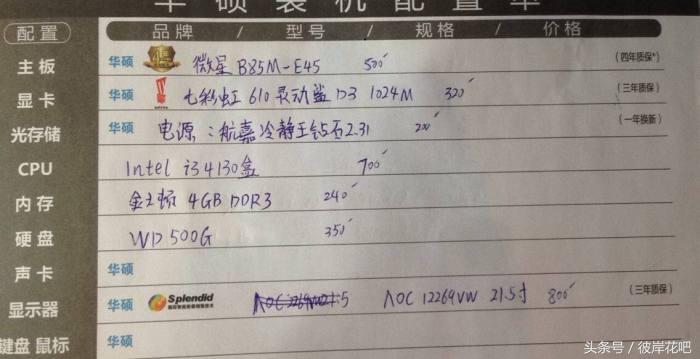 华硕装机配置单
配置 品牌 / 型号 / 规格 / 价格
主板 华硕 微星 B85M-E45 500 (四年质保*)
显卡 华硕 七彩虹 610 灵动鲨 D3 1024M 320 (三年质保)
光存储 华硕 电源:航嘉冷静王钻石2.31 200 (一年换新)
CPU Intel i3 4130盒 700
内存 金士顿 4GB DDR3 240
硬盘 WD 500G 350
声卡 华硕
显示器 华硕 Splendid AOC 12269VW 21.5寸 800 (三年质保)
键盘 鼠标 华硕
头条号 / 彼岸花吧